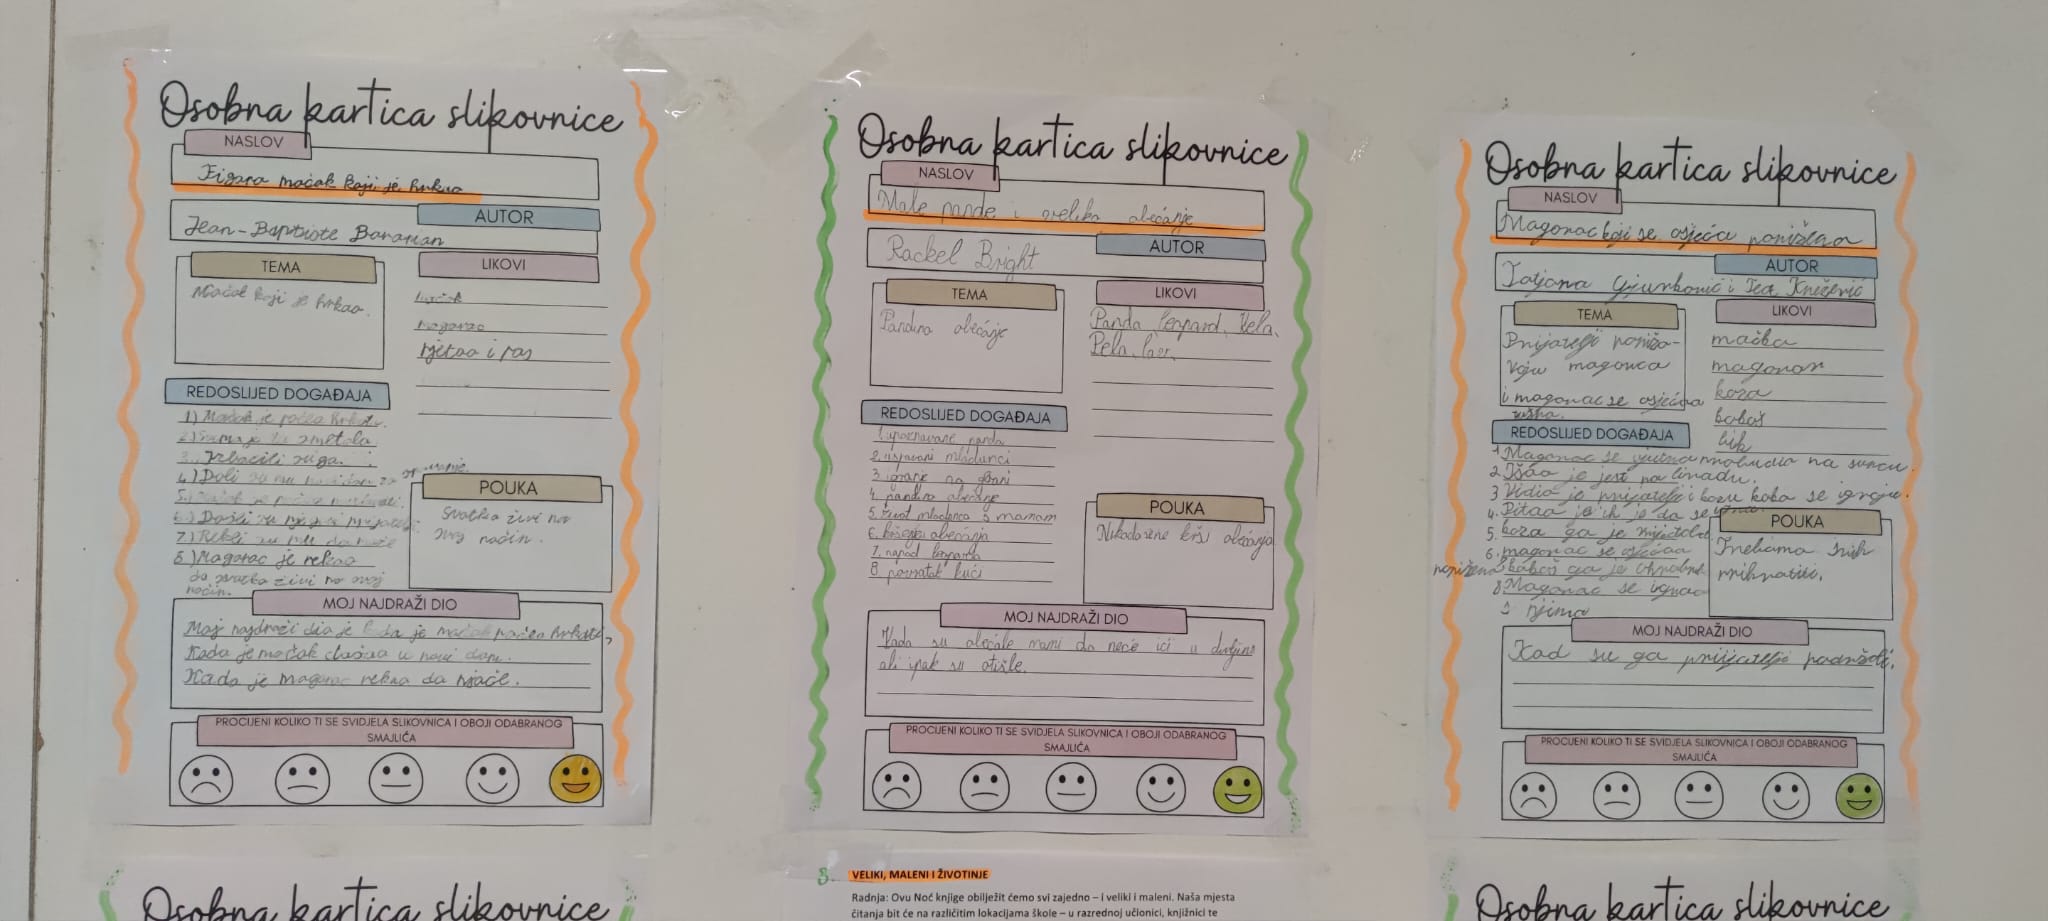 Osobna kartica slikovnice
NASLOV
Figaro mačak koji je hrkao
AUTOR
Jean-Baptiste Baronian
TEMA
Mačak koji je hrkao.
LIKOVI
mačak
magarac
pjetao i pas
REDOSLIJED DOGAĐAJA
1) Mačak je počeo hrkati.
2) je smetalo
3. Izbacili su ga.
4.) Došli su mu
5.)
6.) Došli su
7.) Rekli su mu da
8.) Magarac je rekao
da svatko živi na svoj
način.
POUKA
Svatko živi na
svoj način.
MOJ NAJDRAŽI DIO
Moj najdraži dio je kada je mačak počeo hrkati,
Kada je mačak došao u novi dom.
Kada je magarac rekao da njače.
PROCIJENI KOLIKO TI SE SVIDJELA SLIKOVNICA I OBOJI ODABRANOG
SMAJLIĆA
Osobna kartica slikovnice
NASLOV
Male pande i veliko obećanje
AUTOR
Rackel Bright
TEMA
Pandino obećanje
LIKOVI
Panda, leopard, Hela,
Pela,
REDOSLIJED DOGAĐAJA
1. upoznavane panda
2. mladunci
3. igranje na grani
4. pandino obećanje
5. život mladunca s mamom
6. kršenje obećanja
7. napad leoparda
8. povratak kući
POUKA
Nikada ne krši obećanja
MOJ NAJDRAŽI DIO
Kada su obećale mami da neće ići u divljinu
ali ipak su otišle.
PROCIJENI KOLIKO TI SE SVIDJELA SLIKOVNICA I OBOJI ODABRANOG
SMAJLIĆA
Osobna kartica slikovnice
NASLOV
Magarac koji se osjeća poniženo
AUTOR
Tatjana Gjurković i Tea Knežević
TEMA
Prijatelji poniža-
vaju magarca
i magarac se osjećao
LIKOVI
mačka
magarac
koza
kokoš
bik
REDOSLIJED DOGAĐAJA
1. Magarac se ujutro probudio na suncu.
2. Išao je jest na livadu.
3 Vidio je prijatelje i kozu kako se igraju.
4. Pitao je ih je da se
5. koza ga je
6. magarac se osjećao
poniženo
7. kokoš ga je
8. Magarac se igrao
s njima
POUKA
Trebamo svih
prihvatiti.
MOJ NAJDRAŽI DIO
Kad su ga prijatelji podržali.
PROCIJENI KOLIKO TI SE SVIDJELA SLIKOVNICA I OBOJI ODABRANOG
SMAJLIĆA
Osobna kartica slikovnice
3.
VELIKI, MALENI I ŽIVOTINJE
Radnja: Ovu Noć knjige obilježit ćemo svi zajedno – i veliki i maleni. Naša mjesta
čitanja bit će na različitim lokacijama škole – u razrednoj učionici, knjižnici te
Osobna kartica slikovnice